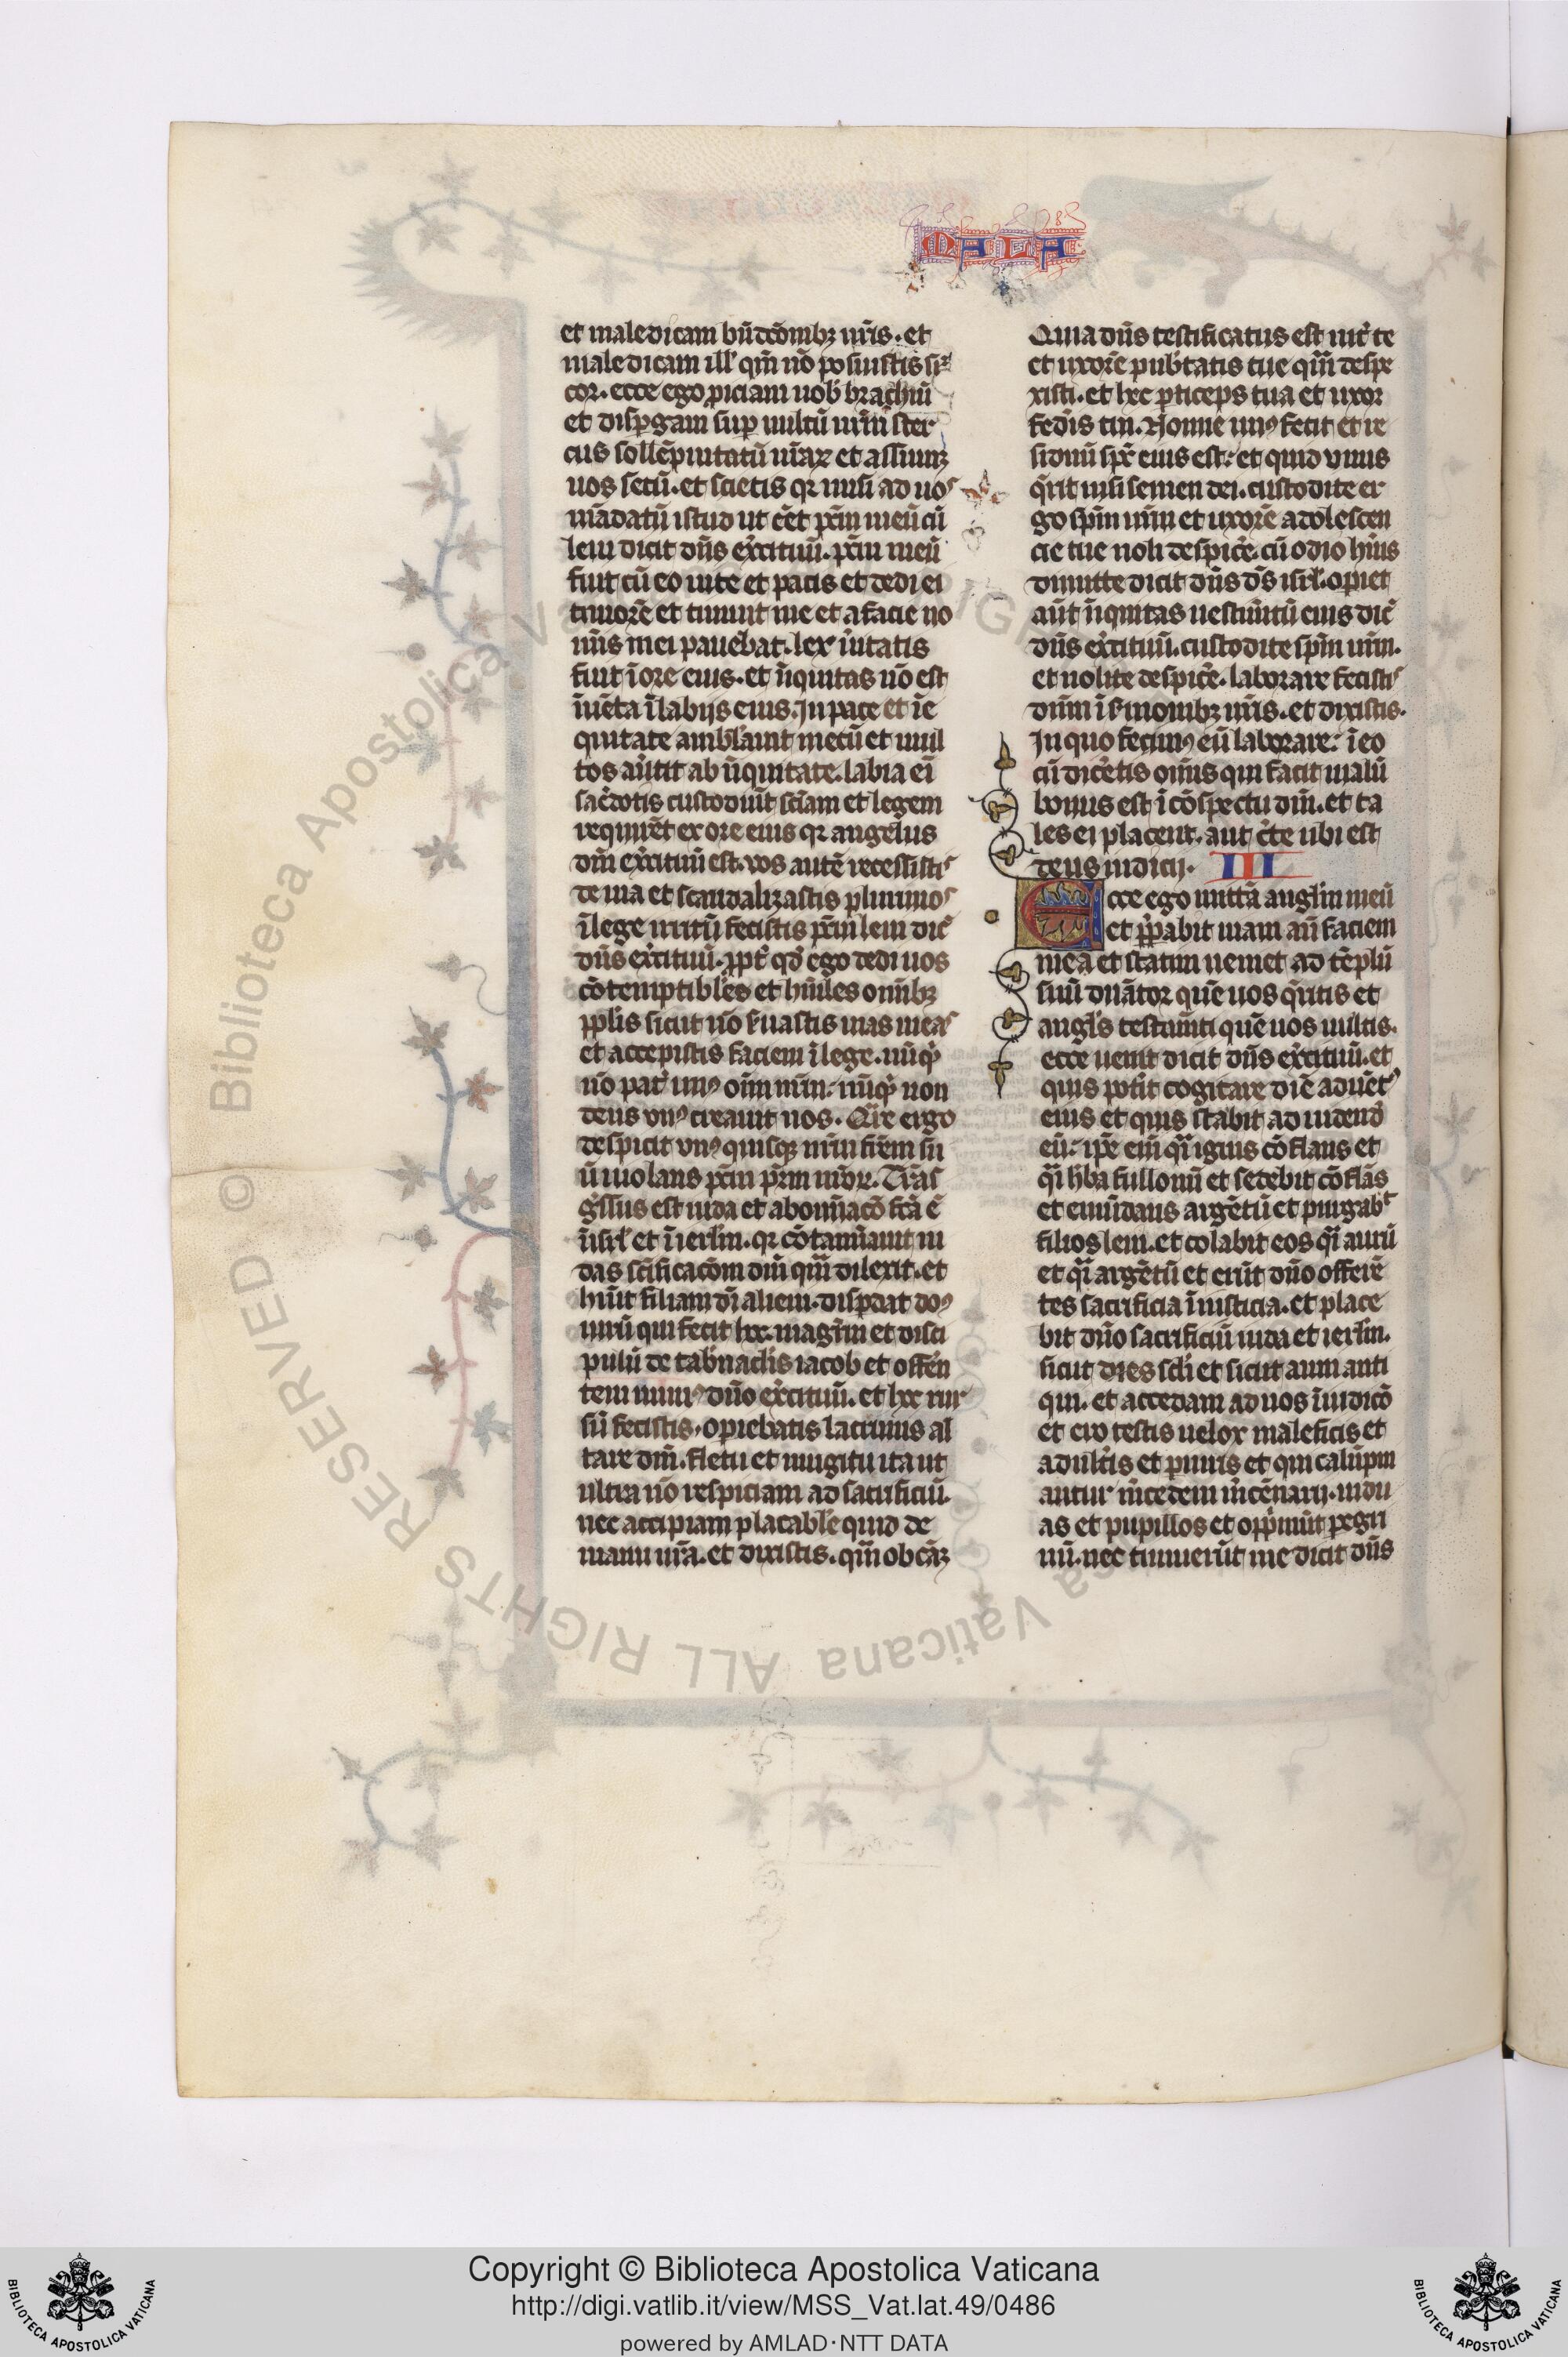 MALA
et maledicam bn̄dcōnibꝫ ur̄is. et
maledicam ill' qm̄ nō posuistis sr̄
cor. ecce ego ꝓiciam uob' brachiū
et dispgam sup uultū ur̄m ster
cus sollēpnitatū ur̄aꝝ et assum̄ꝫ
uos secū. et scietis qꝛ misi ad uos
mādatū istud ut eēt pc̄m meū cū
leui dicit dn̄s exc̄ituū. pc̄m meū
fuit cū eo uite et pacis et dedi ei
timorē et timuit me et a facie no
mīs mei pauebat. lex ūitatis
fuit ī ore eius. et īiquitas nō est
īuēta ī labijs eius. In pace et ī e
quitate ambl'auit mecū et mul
tos aūtit ab īiquitate. labia eī
sac̄dotis custodiūt scīam et legem
requirēt ex ore eius qꝛ angelus
dn̄i exc̄ituū est. vos autē recessistis
de uia et scandalizastis plurimos
ī lege irritū fecistis pc̄m leui dic̄
dn̄s exc̄ituū. ꝓpt' qd' ego dedi uos
cōtemptibl'es et hūiles omībꝫ
ppl'is sicut nō s'uastis uias meas
et accepistis faciem ī lege. nūq'
nō pat' unꝰ om̄ nr̄m: nūq' non
deus vnꝰ creauit nos. Qr̄e ergo
despicit vnꝰ quisqꝫ nr̄m fr̄em su
ū uiolans pc̄m pr̄m nr̄oꝝ. Trās
g'ssus est iuda et abomīacō fc̄a ē
ī isrl' et ī ierl'm. qꝛ cōtamīauit iu
das sc̄ificacōm dn̄i qm̄ dilexit. et
hūit filiam dī alieni. disꝑdat doꝰ
uirū qui fecit hec. magr̄m et disci
pulū de tab'nacl'is iacob et offer̄
tem munꝰ dn̄o exc̄ituū. et hec rur
sū fecistis. opiebatis lacrimis al
tare dn̄i. fletu et mugitu ita ut
ultra nō respiciam ad sacrificiū
nec accipiam placabl'e quid de
manu ur̄a. et dixistis. qm̄ ob cāꝫ
Quia dn̄s testificatus est int' te
et uxorē pub'tatis tue qm̄ despe
xisti. et hec ꝑticeps tua et uxor
fed'is tui. Nonne unꝰ fecit et re
siduū spc̄ eius est: et quid vnus
q̄rit nisi semen dei. custodite er
go spm̄ ur̄m et uxorē adolescen
cie tue noli despic̄e. cū odio hūis
dimitte dicit dn̄s ds̄ isrl'. opiet
aūt īiquitas uestim̄tū eius dic̄
dn̄s exc̄ituū. custodite spm̄ ur̄m.
et nolite despic̄e. laborare fecistis
dn̄m ī s'monibꝫ ur̄is. et dixistis.
In quo fecimꝰ eū laborare: ī eo
cū dic̄etis om̄is qui facit malū
bonus est ī cōspectu dn̄i. et ta
les ei placent. aut c̄te ubi est
deus iudicij. III
Ecce ego mittā angl'm meū
et p̄pabit uiam an̄ faciem
meā et statim ueniet ad tēplū
suū dn̄ator quē uos q̄ritis et
angl's testam̄ti quē uos uultis.
ecce uenit dicit dn̄s exc̄ituū. et
quis pot'it cogitare diē aduētꝰ
eius et quis stabit ad uidend'
eū: ip̄e eni q̄i ignis cōflans et
q̄i h'ba fullonū et sedebit cōflās
et emūdans argētū et purgab't
filios leui. et colabit eos q̄i aurū
et q̄i argētū et erūt dn̄o offerē
tes sacrificia ī iusticia. et place
bit dn̄o sacrificiū iuda et ierl'm.
sicut dies sc̄li et sicut anni anti
qui. et accedam ad uos ī iudicō
et ero testis uelox maleficis et
adult'is et periuris et qui calūpni
antur m'cedem m'cēnarij. uidu
as et pupillos et opp̄mūt pegri
nū. nec timuerūt me dicit dn̄s
Copyright © Biblioteca Apostolica Vaticana
http://digi.vatlib.it/view/MSS_Vat.lat.49/0486
powered by AMLAD·NTT DATA
BIBLIOTECA APOSTOLICA VATICANA
BIBLIOTECA APOSTOLICA VATICANA
© Biblioteca Apostolica Vaticana ALL RIGHTS RESERVED